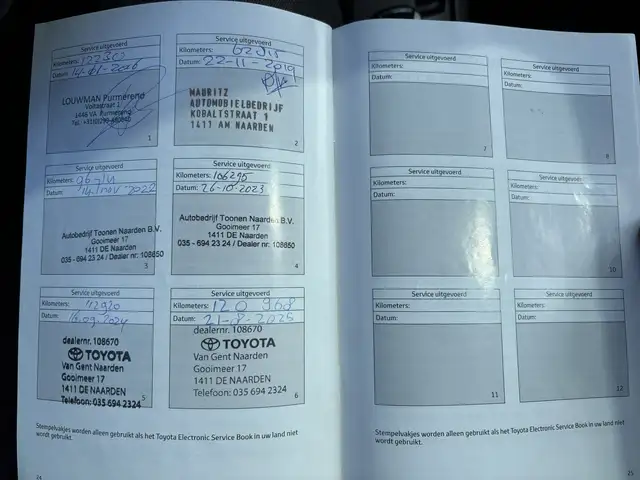 Service uitgevoerd
Kilometers:
Datum:
LOUWMAN Purmerend
1
Service uitgevoerd
Kilometers:
Datum: 22-11-2019
MAURITZ
AUTOMOBIELBEDRIJF
KOBALTSTRAAT 1
1411 AM NAARDEN
2
Service uitgevoerd
Kilometers:
Datum: 14 nov 2022
Autobedrijf Toonen Naarden B.V.
Gooimeer 17
1411 DE Naarden
035 - 694 23 24 / Dealer nr: 108650
3
Service uitgevoerd
Kilometers: 106295
Datum: 26-10-2023
Autobedrijf Toonen Naarden B.V.
Gooimeer 17
1411 DE Naarden
035 - 694 23 24 / Dealer nr: 108650
4
Service uitgevoerd
Kilometers:
Datum:
dealernr. 108670
TOYOTA
Van Gent Naarden
Gooimeer 17
1411 DE NAARDEN
Telefoon: 035 694 2324
5
Service uitgevoerd
Kilometers: 120 968
Datum: 21-8-2025
dealernr. 108670
TOYOTA
Van Gent Naarden
Gooimeer 17
1411 DE NAARDEN
Telefoon: 035 694 2324
6
Stempelvakjes worden alleen gebruikt als het Toyota Electronic Service Book in uw land niet
wordt gebruikt.
24
Service uitgevoerd
Kilometers:
Datum:
7
Service uitgevoerd
Kilometers:
Datum:
8
Service uitgevoerd
Kilometers:
Datum:
Service uitgevoerd
Kilometers:
Datum:
10
Service uitgevoerd
Kilometers:
Datum:
11
Service uitgevoerd
Kilometers:
Datum:
12
Stempelvakjes worden alleen gebruikt als het Toyota Electronic Service Book in uw land niet
wordt gebruikt.
25